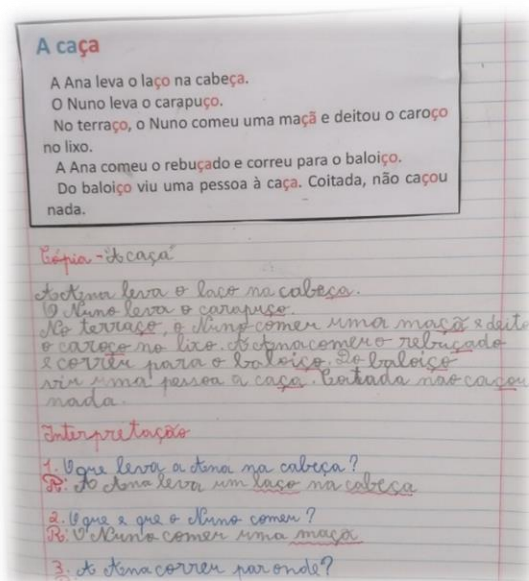 A caça
A Ana leva o laço na cabeça.
O Nuno leva o carapuço.
No terraço, o Nuno comeu uma maçã e deitou o caroço
no lixo.
A Ana comeu o rebuçado e correu para o baloiço.
Do baloiço viu uma pessoa à caça. Coitada, não caçou
nada.
Cópia - "A caça"
A Ana leva o laco na cabeça.
O Nuno leva o carapuço.
No terraço, o Nuno comeu uma maçã e deito
o caroço no lixo. A Ana comeu o rebuçado
e correu para o baloiço. Do baloiço
viu uma pessoa a caça. Coitada não caçou
nada.
Interpretação
1. O que leva a Ana na cabeça?
R: A Ana leva um laço na cabeça
2. O que e que o Nuno comeu?
R: O Nuno comeu uma maçã
3. A Ana correu par onde?